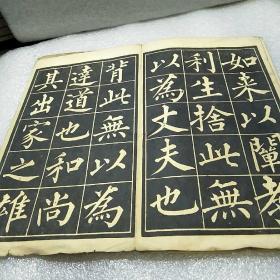 如来以闡教
利生捨此無
以為丈夫也
背此無以為
達道也和尚
其出家之雄